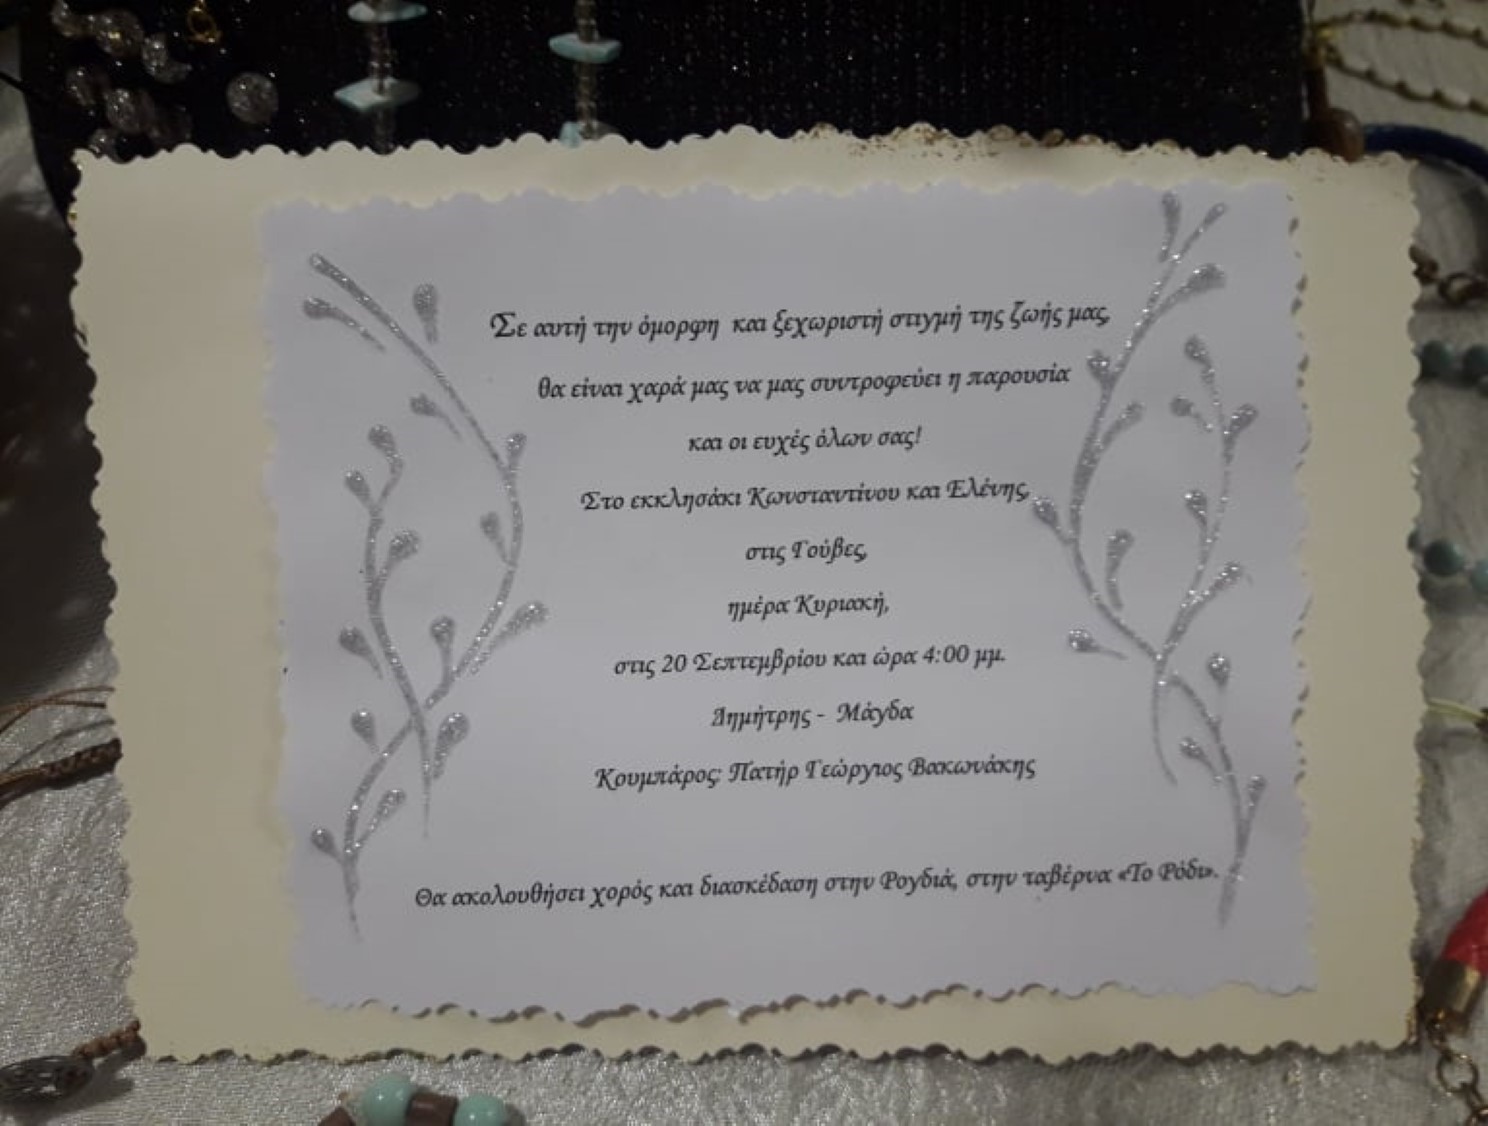 Σε αυτή την όμορφη και ξεχωριστή στιγμή της ζωής μας,
θα είναι χαρά μας να μας συντροφεύει η παρουσία
και οι ευχές όλων σας!
Στο εκκλησάκι Κωνσταντίνου και Ελένης,
στις Γούβες,
ημέρα Κυριακή,
στις 20 Σεπτεμβρίου και ώρα 4:00 μμ.
Δημήτρης - Μάγδα
Κουμπάρος: Πατήρ Γεώργιος Βακωνάκης
Θα ακολουθήσει χορός και διασκέδαση στην Ρογδιά, στην ταβέρνα «Το Ρόδι».